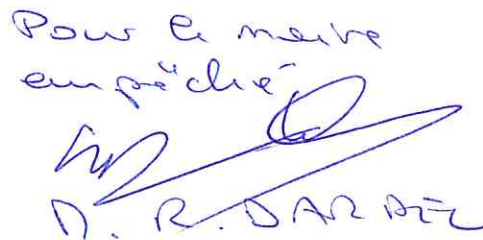 Pour le maire
empêché
M. R. DARDEL